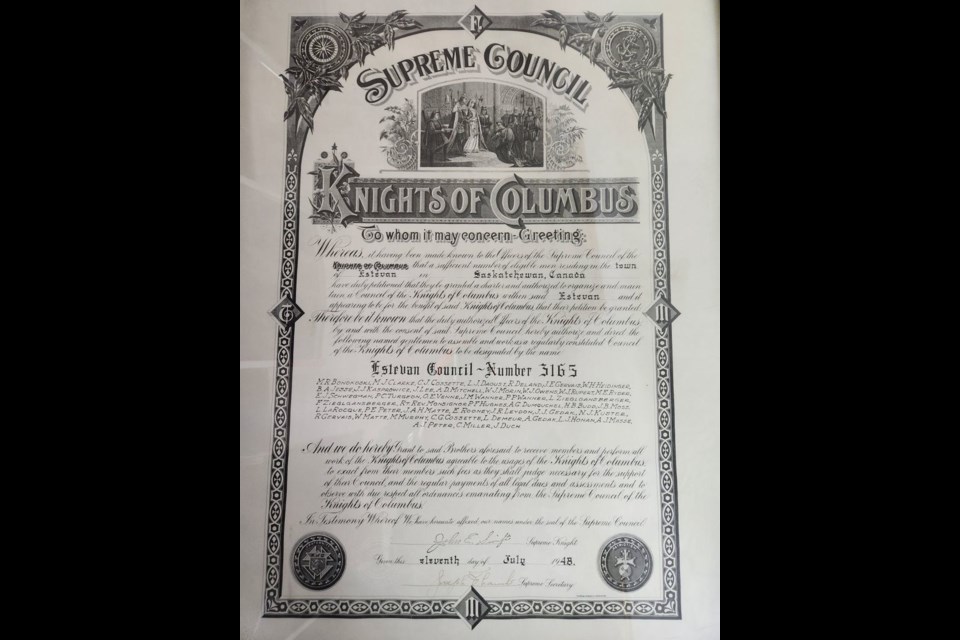 SUPREME COUNCIL
KNIGHTS OF COLUMBUS
To whom it may concern - Greeting:
Whereas, it having been made known to the Officers of the Supreme Council of the
Knights of Columbus, that a sufficient number of eligible men residing in the town
of Estevan in Saskatchewan, Canada
have duly petitioned that they be granted a charter and authorized to organize and main
tain a Council of the Knights of Columbus within said Estevan and it
appearing to be for the benefit of said Knights of Columbus that their petition be granted
Therefore be it known that the duly authorized Officers of the Knights of Columbus,
by and with the consent of said Supreme Council hereby authorize and direct the
following named gentlemen to assemble and work as a regularly constituted Council
of the Knights of Columbus to be designated by the name
Estevan Council - Number 3165
M.J. CLARKE, C.J. COSSETTE, L.J. DAOUST, R. DELAND, J.E. GERVAIS, W.H. HEIDINGER,
B.A. JOSSE, J.J. KARNOWICZ, J. LEE, A.D. MITCHELL, W.J. MORIN, W.J. NAGEL, W.J. RUPERT, M.E. RYDER,
E.J. SCHNEEMAN, P.C. TURGEON, O.E. VENNE, J.M. WANNER, P.P. WANNER, L. ZIEGLGANSBERGER,
F. ZIEGLGANSBERGER, RT. REV. MONSIGNOR P.F. HUGHES, A.G. DUMOUCHEL, H.B. BUDD, J.B. MOSS,
L. LAROCQUE, P.E. PETER, J.A.H. MATTE, E. ROONEY, J.R. LEYDON, J.J. GEDAK, N.J. KUSTER,
R. GERVAIS, W. MATTE, M. MURPHY, C.G. COSSETTE, L. DEMEUR, A. GEDAK, L.J. HONAN, A.J. MOSSE,
A.J. PETER, C. MILLER, J. DUCH
And we do hereby Grant to said Brothers aforesaid to receive members and perform all
work of the Knights of Columbus agreeable to the usages of the Knights of Columbus,
to exact from their members such fees as they shall judge necessary for the support
of their Council, and the regular payments of all legal dues and assessments and to
observe with due respect all ordinances emanating from the Supreme Council of the
Knights of Columbus.
In Testimony Whereof We have hereunto affixed our names under the seal of the Supreme Council
Supreme Knight
Given this eleventh day of July 1948.
Supreme Secretary